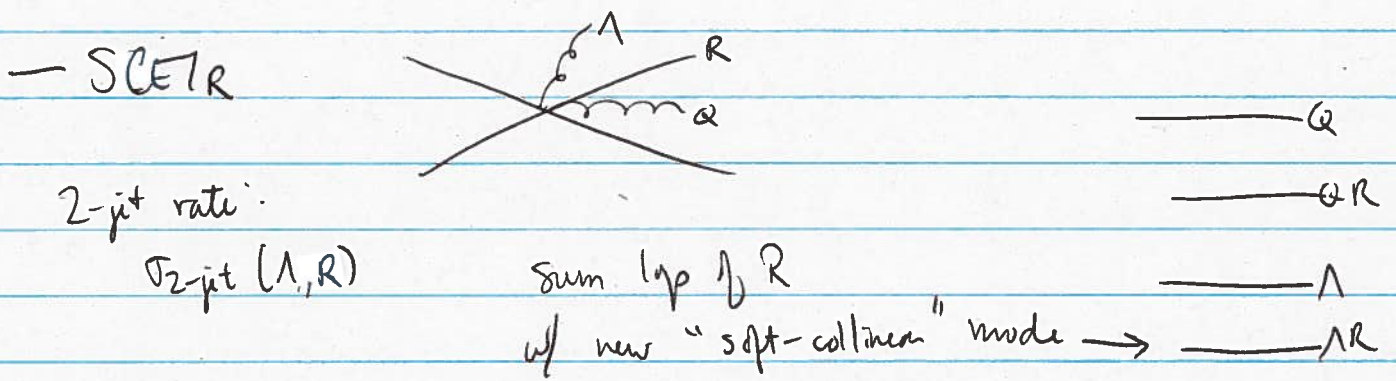 Λ
— SCET_R
R
Q
Q
2-jet rate:
QR
σ_2-jet (Λ, R)
sum logs of R
Λ
w/ new "soft-collinear" mode → ΛR